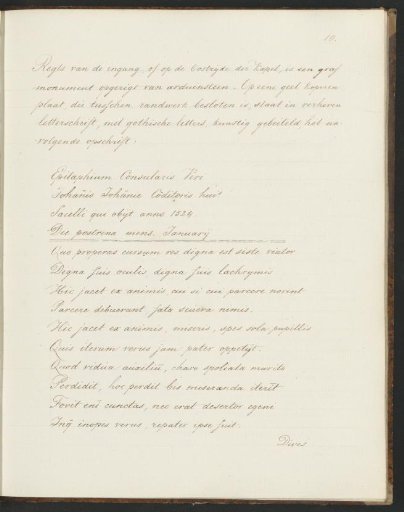 10.
Regts van de ingang of op de Oostzyde der Kapel, is een graf
monument opgerigt van arduinsteen. Op eene geel koperen
plaat die tusschen randwerk besloten is, staat in verheven
letterschrift, met gothische letters, kunstig gebeiteld, het na
volgende opschrift:
Epitaphium Consularis Viri
Johanis Johanie Coditoris huis
Sacelli qui obyt anno 1534
Die postrema mens. January
Quo properas cursum res digna est siste viator
Digna suis oculis digna suis lachrymis
Hic jacet ex animis cui si cui parcere norint
Parcere debuerant fata severa nimis.
Hic jacet ex animis, miseris, spes sola pupillis
Quis iterum verus jam pater oppetyt.
Quod vidua auxiliu, charo spoliata marito
Perdidit, hoc perdit bis miseranda
Fovit eni cunctas, nec erat desertor egeni
Inq inopes verus, repater ipse fuit.
Dives